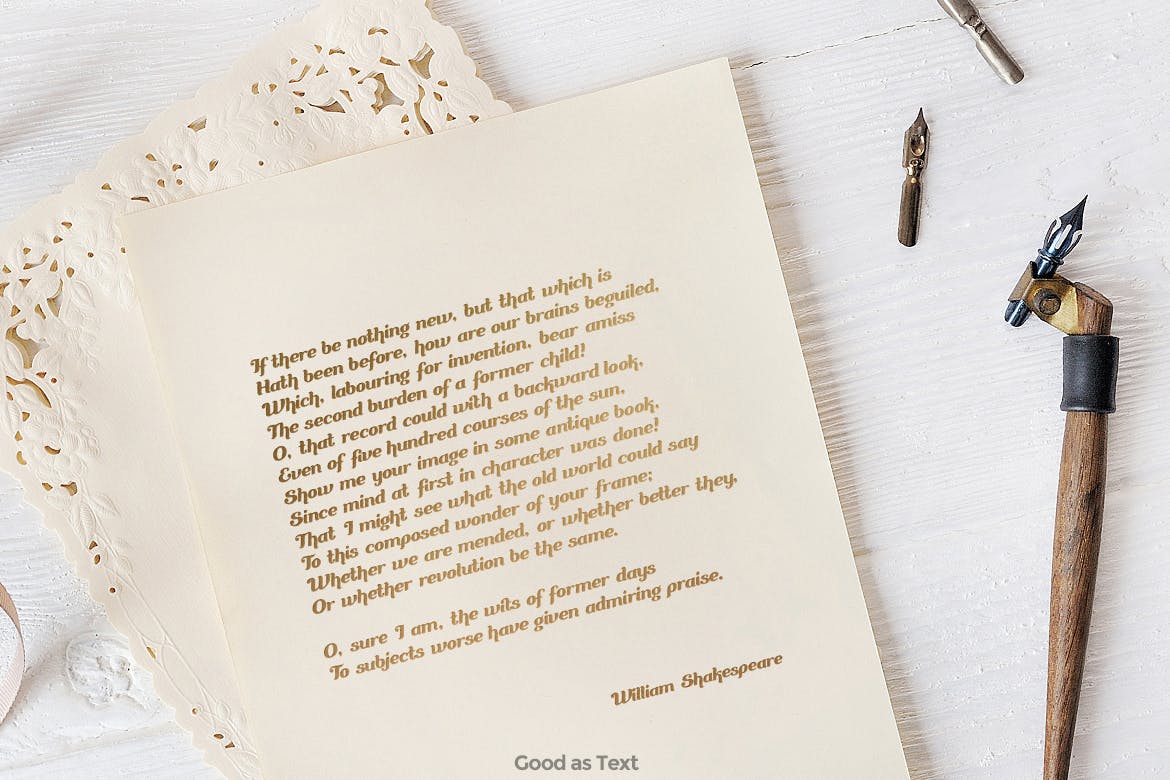 If there be nothing new, but that which is
Hath been before, how are our brains beguiled,
Which, labouring for invention, bear amiss
The second burden of a former child!
O, that record could with a backward look,
Even of five hundred courses of the sun,
Show me your image in some antique book,
Since mind at first in character was done!
That I might see what the old world could say
To this composed wonder of your frame;
Whether we are mended, or whether better they,
Or whether revolution be the same.
O, sure I am, the wits of former days
To subjects worse have given admiring praise.
William Shakespeare
Good as Text